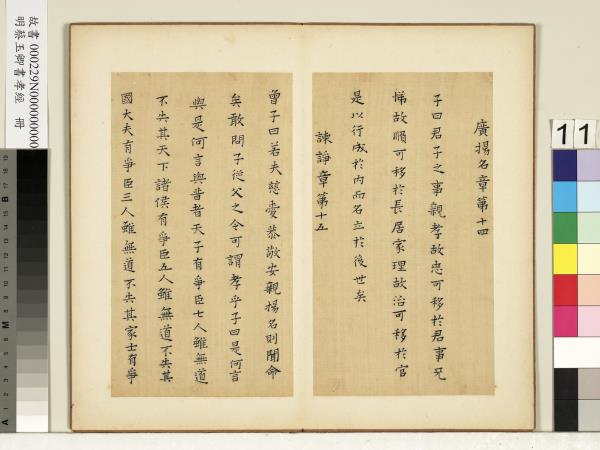 廣揚名章第十四
子曰君子之事親孝故忠可移於君事兄
悌故順可移於長居家理故治可移於官
是以行成於内而名立於後世矣
諫諍章第十五
曾子曰若夫慈愛恭敬安親揚名則聞命
矣敢問子從父之令可謂孝乎子曰是何言
與是何言與昔者天子有爭臣七人雖無道
不失其天下諸侯有爭臣五人雖無道不失其
國大夫有爭臣三人雖無道不失其家士有爭
故書 000229N000000000
明蔡玉卿書孝經 冊
11
B
M
A